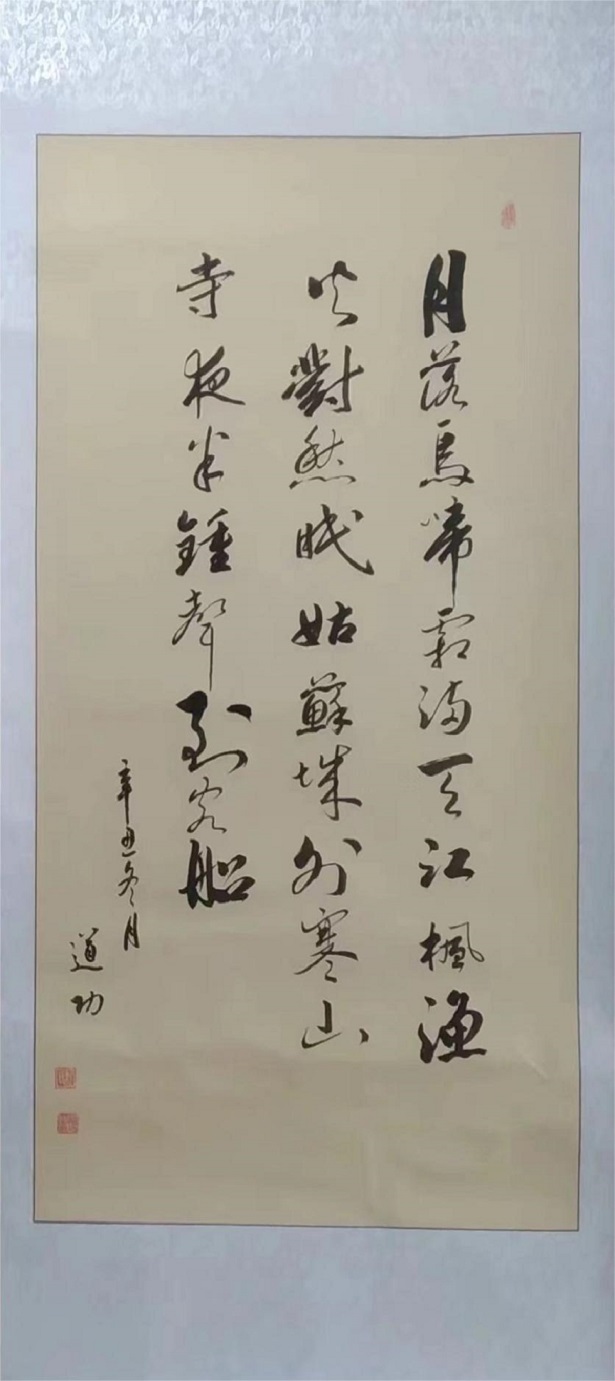 月落烏啼霜满天江楓漁
火對愁眠姑蘇城外寒山
寺夜半鍾聲到客船
辛丑冬月
道功